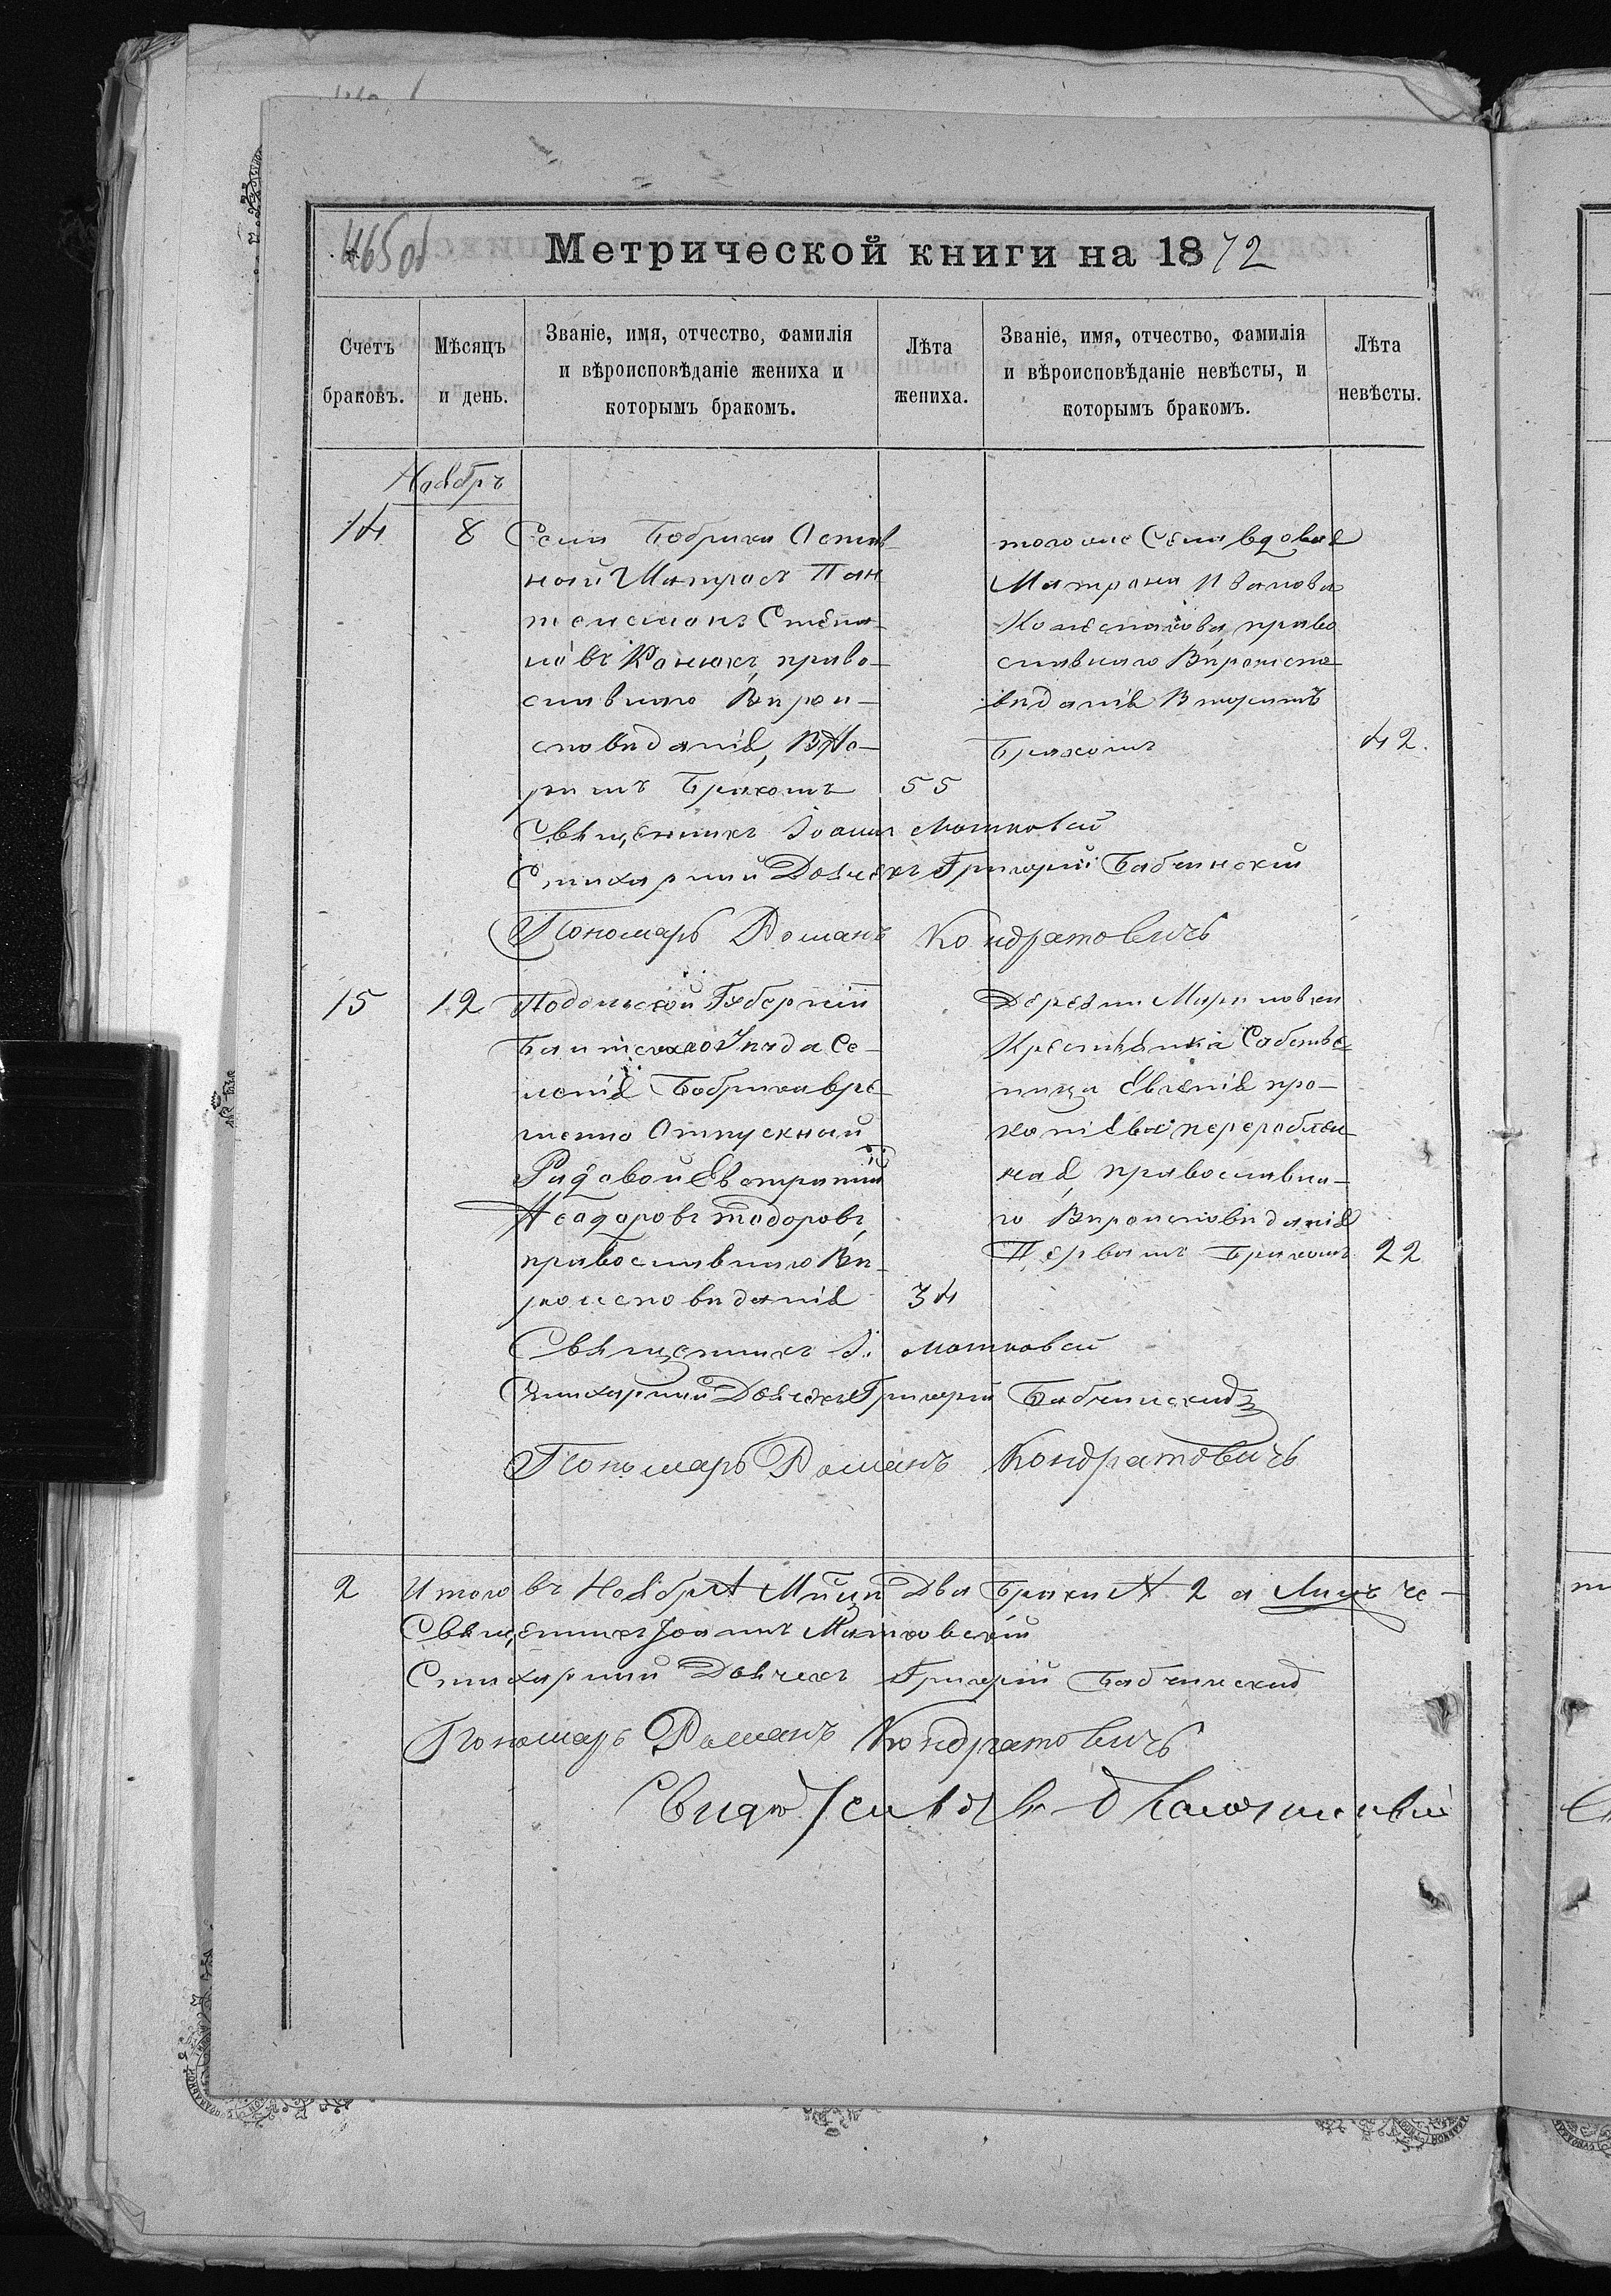 465об
Метрической книги на 1872
Счетъ браковъ.
Мѣсяцъ и день.
Званіе, имя, отчество, фамилія и вѣроисповѣданіе жениха и которымъ бракомъ.
Лѣта жениха.
Званіе, имя, отчество, фамилія и вѣроисповѣданіе невѣсты, и которымъ бракомъ.
Лѣта невѣсты.
Ноябрь
14
8
Села Бобрика Остав-
ной Матросъ Пан
телемонъ Степа-
новъ Конюкъ, право-
славнаго Вирои-
сповиданія, Вто-
римъ Бракомъ
55
того же Села вдова
Матрона Иванова
право
славнаго Вироиспо-
виданія Вторимъ
Бракомъ
42.
Священникъ Іоаннъ
Стихарний Дьячекъ Григорій Бабчинский
Пономарь Романъ Кондратовичъ
15
12
Подольской Губерніи
Балтского Уизда Се-
ленія Бобрика вре-
менно Отпускный
Рядовой Евстратий
Феодоровъ Тодоровъ,
православнаго Ви-
роисповиданія
34
Деревни Мариновки
Крестьянка Собстве-
ница Евгенія Про-
православна-
го Вироисповиданія
Первымъ Бракомъ
22
Священникъ І.
Стихарний Дьячекъ Григорій Бабчинский
Пономарь Романъ Кондратовичъ
2
Итого въ Ноябрѣ Мѣсяцѣ Два Брака № 2 а Лицъ че-
Священникъ Іоаннъ
Стихарний Дьячекъ Григорій Бабчинский
Пономарь Романъ Кондратовичъ